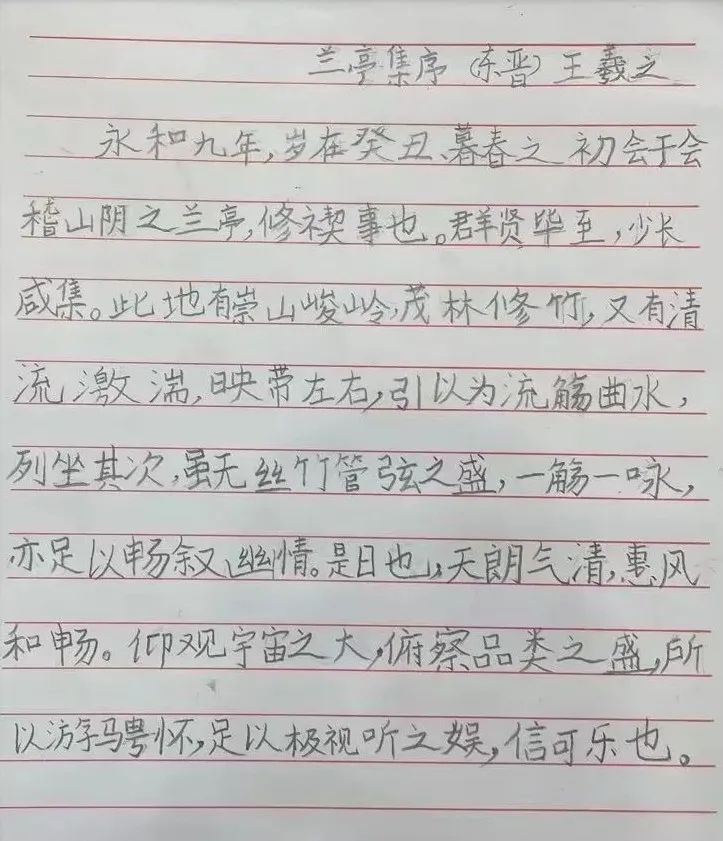 兰亭集序（东晋）王羲之
永和九年，岁在癸丑、暮春之初会于会
稽山阴之兰亭，修禊事也。群贤毕至，少长
咸集。此地有崇山峻岭，茂林修竹，又有清
流激湍，映带左右，引以为流觞曲水，
列坐其次，虽无丝竹管弦之盛，一觞一咏，
亦足以畅叙幽情。是日也，天朗气清，惠风
和畅。仰观宇宙之大，俯察品类之盛，所
以游骋怀，足以极视听之娱，信可乐也。